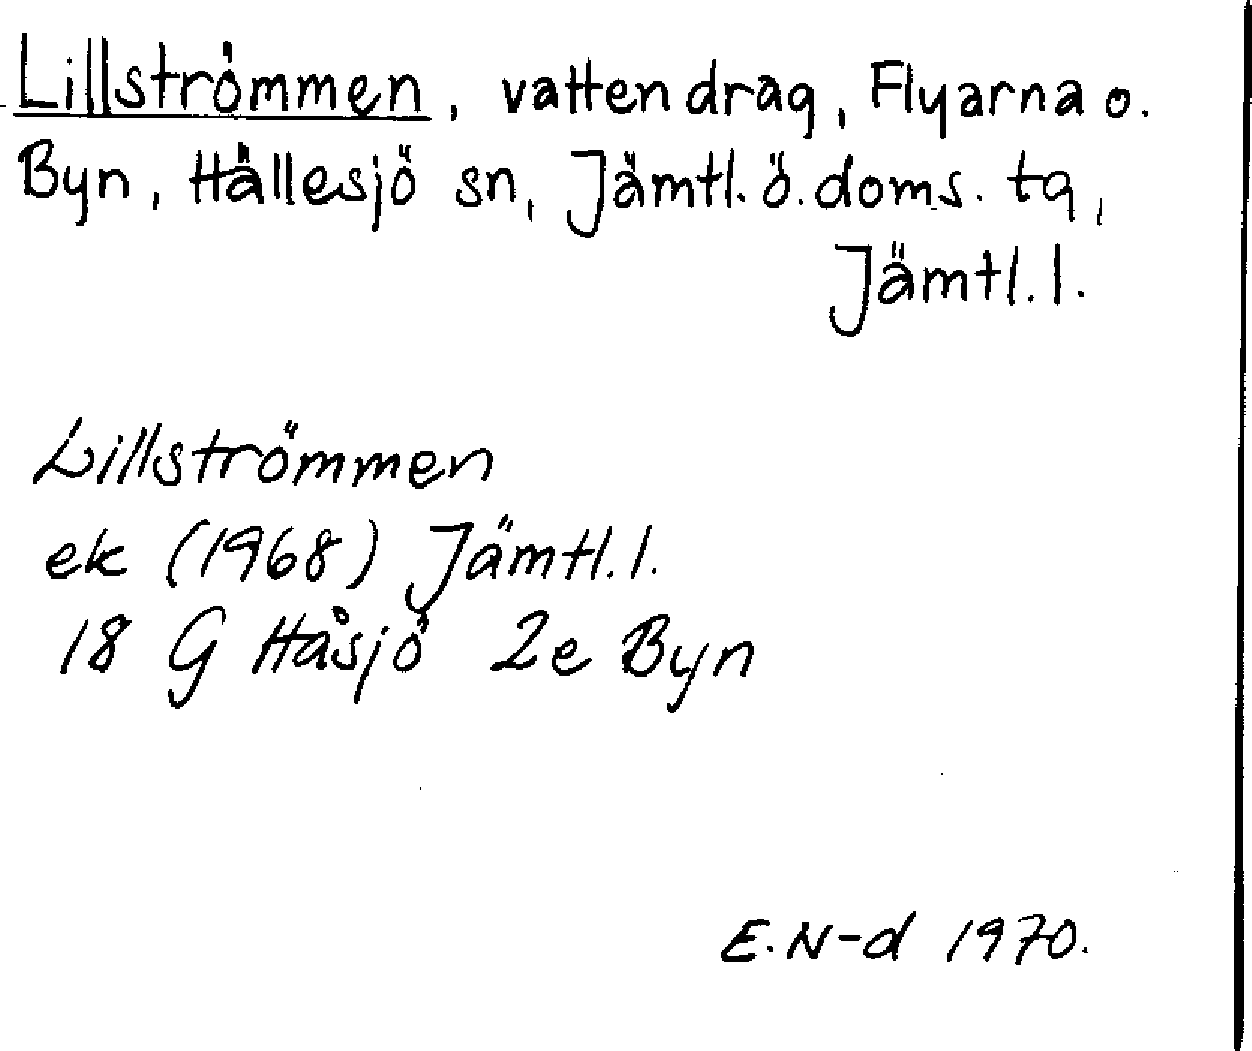 Lillströmmen, vattendrag, Flyarna o.
Byn, Hällesjö sn, Jämtl. ö. doms. tg,
Jämtl. l.
Lillströmmen
ek (1968) Jämtl. l.
18 G Håsjö 2e Byn
E. N-d 1970.